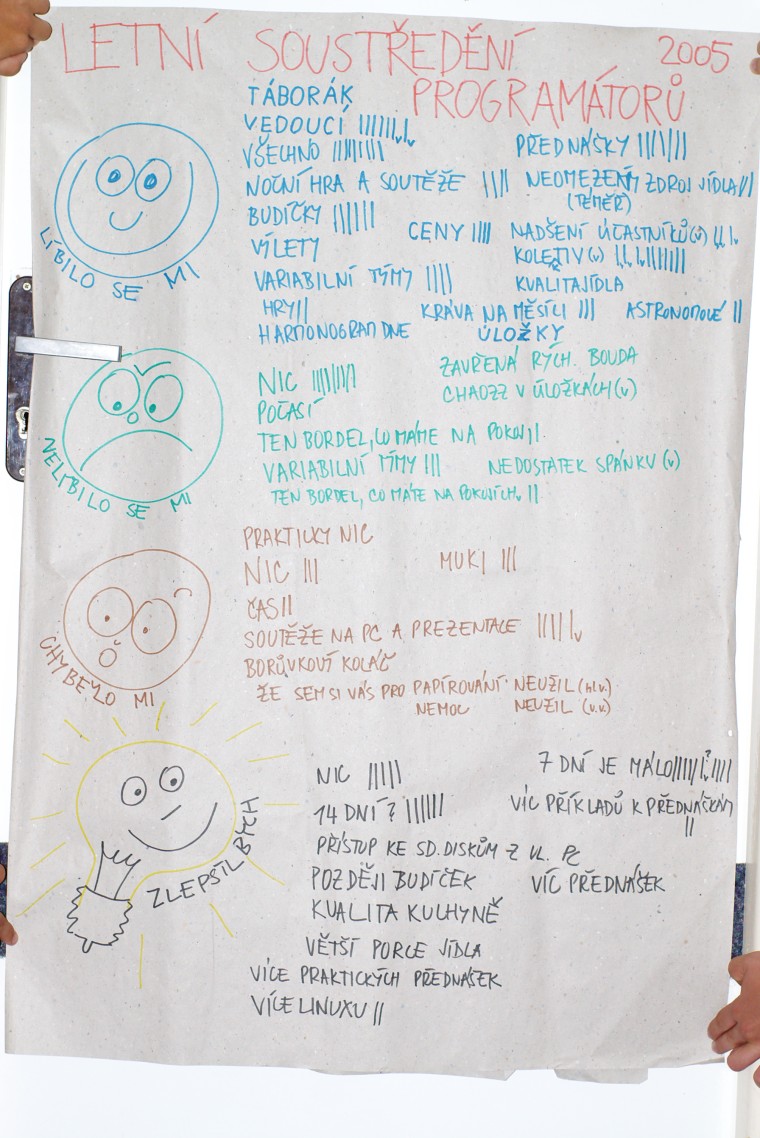 LETNÍ SOUSTŘEDĚNÍ 2005
PROGRAMÁTORŮ
TÁBORÁK
VEDOUCÍ
VŠECHNO
PŘEDNÁŠKY
NOČNÍ HRA A SOUTĚŽE
NEOMEZENÝ ZDROJ JÍDLA
(TÉMĚŘ)
BUDÍČKY
CENY
NADŠENÍ ÚČASTNÍKŮ(v)
VÝLETY
KOLEKTIV(v)
VARIABILNÍ TÝMY
KVALITA JÍDLA
HRY
KRÁVA NA MĚSÍCI
ASTRONOMOVÉ
HARMONOGRAM DNE
ÚLOŽKY
LÍBILO SE MI
NIC
ZAVŘENÁ RYCH. BOUDA
POČASÍ
CHAOZZ V ÚLOŽKÁCH(v)
TEN BORDEL, CO MÁME NA POKOJI
VARIABILNÍ TÝMY
NEDOSTATEK SPÁNKU (v)
TEN BORDEL, CO MÁTE NA POKOJÍCH.
NELÍBILO SE MI
PRAKTICKY NIC
NIC
MUKI
ČAS
SOUTĚŽE NA PC A PREZENTACE
BORŮVKOVÍ KOLÁČ
ŽE SEM SI VÁS PRO PAPÍROVÁNÍ NEUŽIL (hl.v.)
NEMOC NEUŽIL (v.v.)
CHYBĚLO MI
NIC
7 DNÍ JE MÁLO
14 DNÍ?
VÍC PŘÍKLADŮ K PŘEDNÁŠKÁM
PŘÍSTUP KE SD. DISKŮM Z VL. PC
POZDĚJI BUDÍČEK
VÍC PŘEDNÁŠEK
KVALITA KUCHYNĚ
VĚTŠÍ PORCE JÍDLA
VÍCE PRAKTICKÝCH PŘEDNÁŠEK
VÍCE LINUXU
ZLEPŠIL BYCH